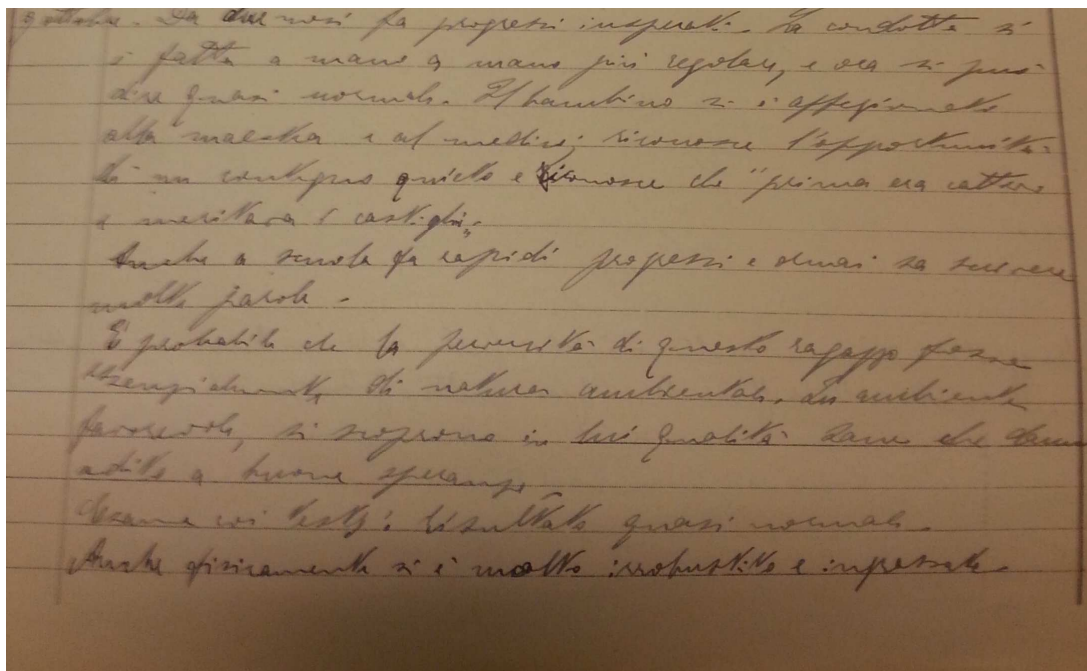 9 ottobre. Da due mesi fa progressi insperati. La condotta si
è fatta a mano a mano più regolare, e ora si può
dire quasi normale. Il bambino si è affezionato
alla maestra e al medico; riconosce l'opportunità
di un contegno quieto e riconosce che "prima era cattivo
e meritava i castighi".
Anche a scuola fa rapidi progressi e ormai sa scrivere
molte parole.
È probabile che la perversità di questo ragazzo fosse
essenzialmente di natura ambientale. In ambiente
favorevole, si scoprono in lui qualità sane che danno
adito a buone speranze.
Esame coi tests: risultato quasi normale.
Anche fisicamente si è molto irrobustito e ingrassato.